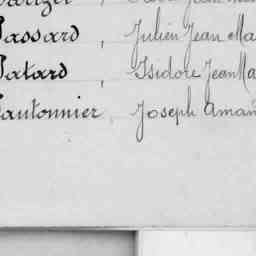 assard, Julien Jean Ma
atard, Isidore Jean Ma
autonnier, Joseph Aman